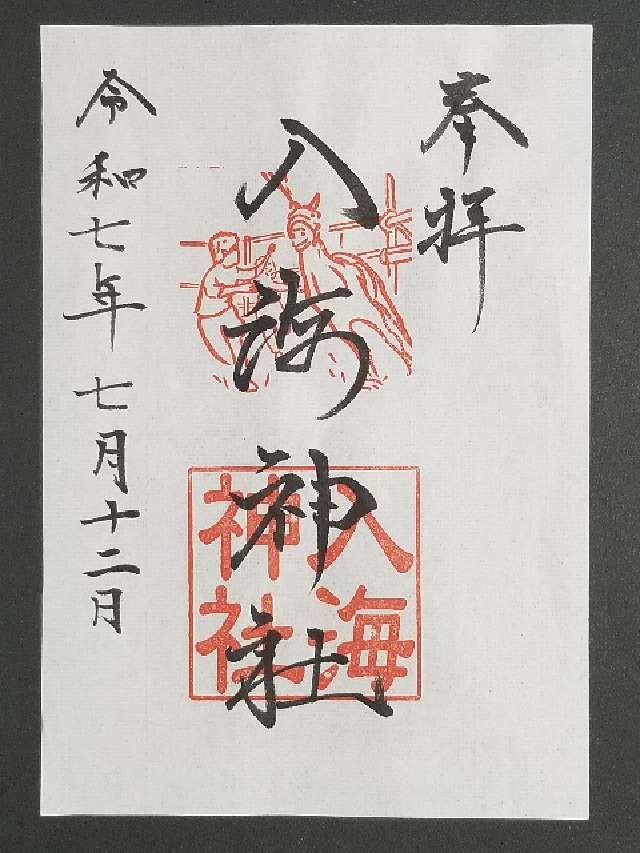 奉拝
入海神社
入海
神社
令和七年七月十二日